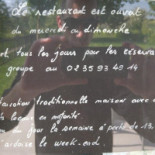 Le restaurant est ouvert
du mercredi au dimanche
et tous les jours pour les réserva
groupe au 02 35 93 42 14
traditionnelle maison avec
du jour la semaine à partir de 13.
ardoise le week-end.